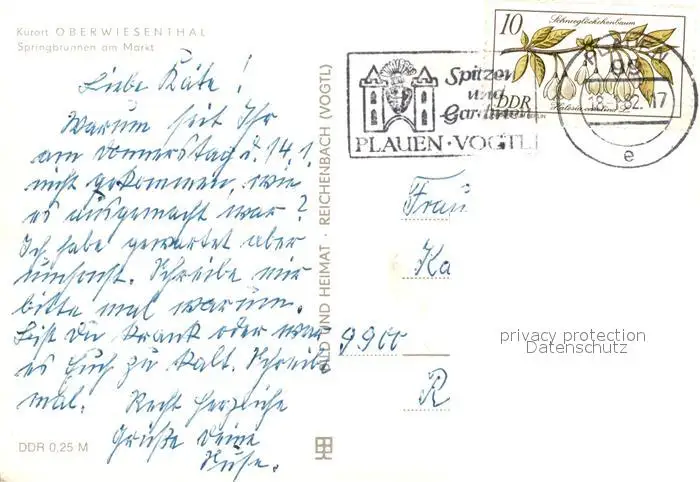 Kurort OBERWIESENTHAL
Springbrunnen am Markt
Liebe Käte!
Warum seit Ihr
am Donnerstag d. 14.1.
nicht gekommen, wie
es ausgemacht war?
Ich habe gewartet aber
umsonst. Schreibe mir
bitte mal warum.
Bist Du krank oder war
es Euch zu kalt. Schreib
mal. Recht herzliche
Grüße Deine
DDR 0,25 M
BILD UND HEIMAT · REICHENBACH (VOGTL)
Spitzen
und
Gardinen
PLAUEN · VOGTL
10
Schneeglöckchenbaum
DDR
99
18.1.82.17
e
Frau
Ka
9900
R
privacy protection
Datenschutz